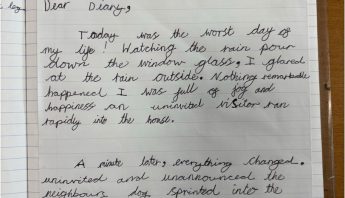 Dear Diary,
Today was the worst day of
my life! Watching the rain pour
down the window glass, I glared
at the rain outside. Nothing remarkable
happened I was full of joy and
happiness an uninvited visitor ran
rapidly into the house.
A minute later, everything changed.
uninvited and unannounced the
neighbours dog sprinted into the